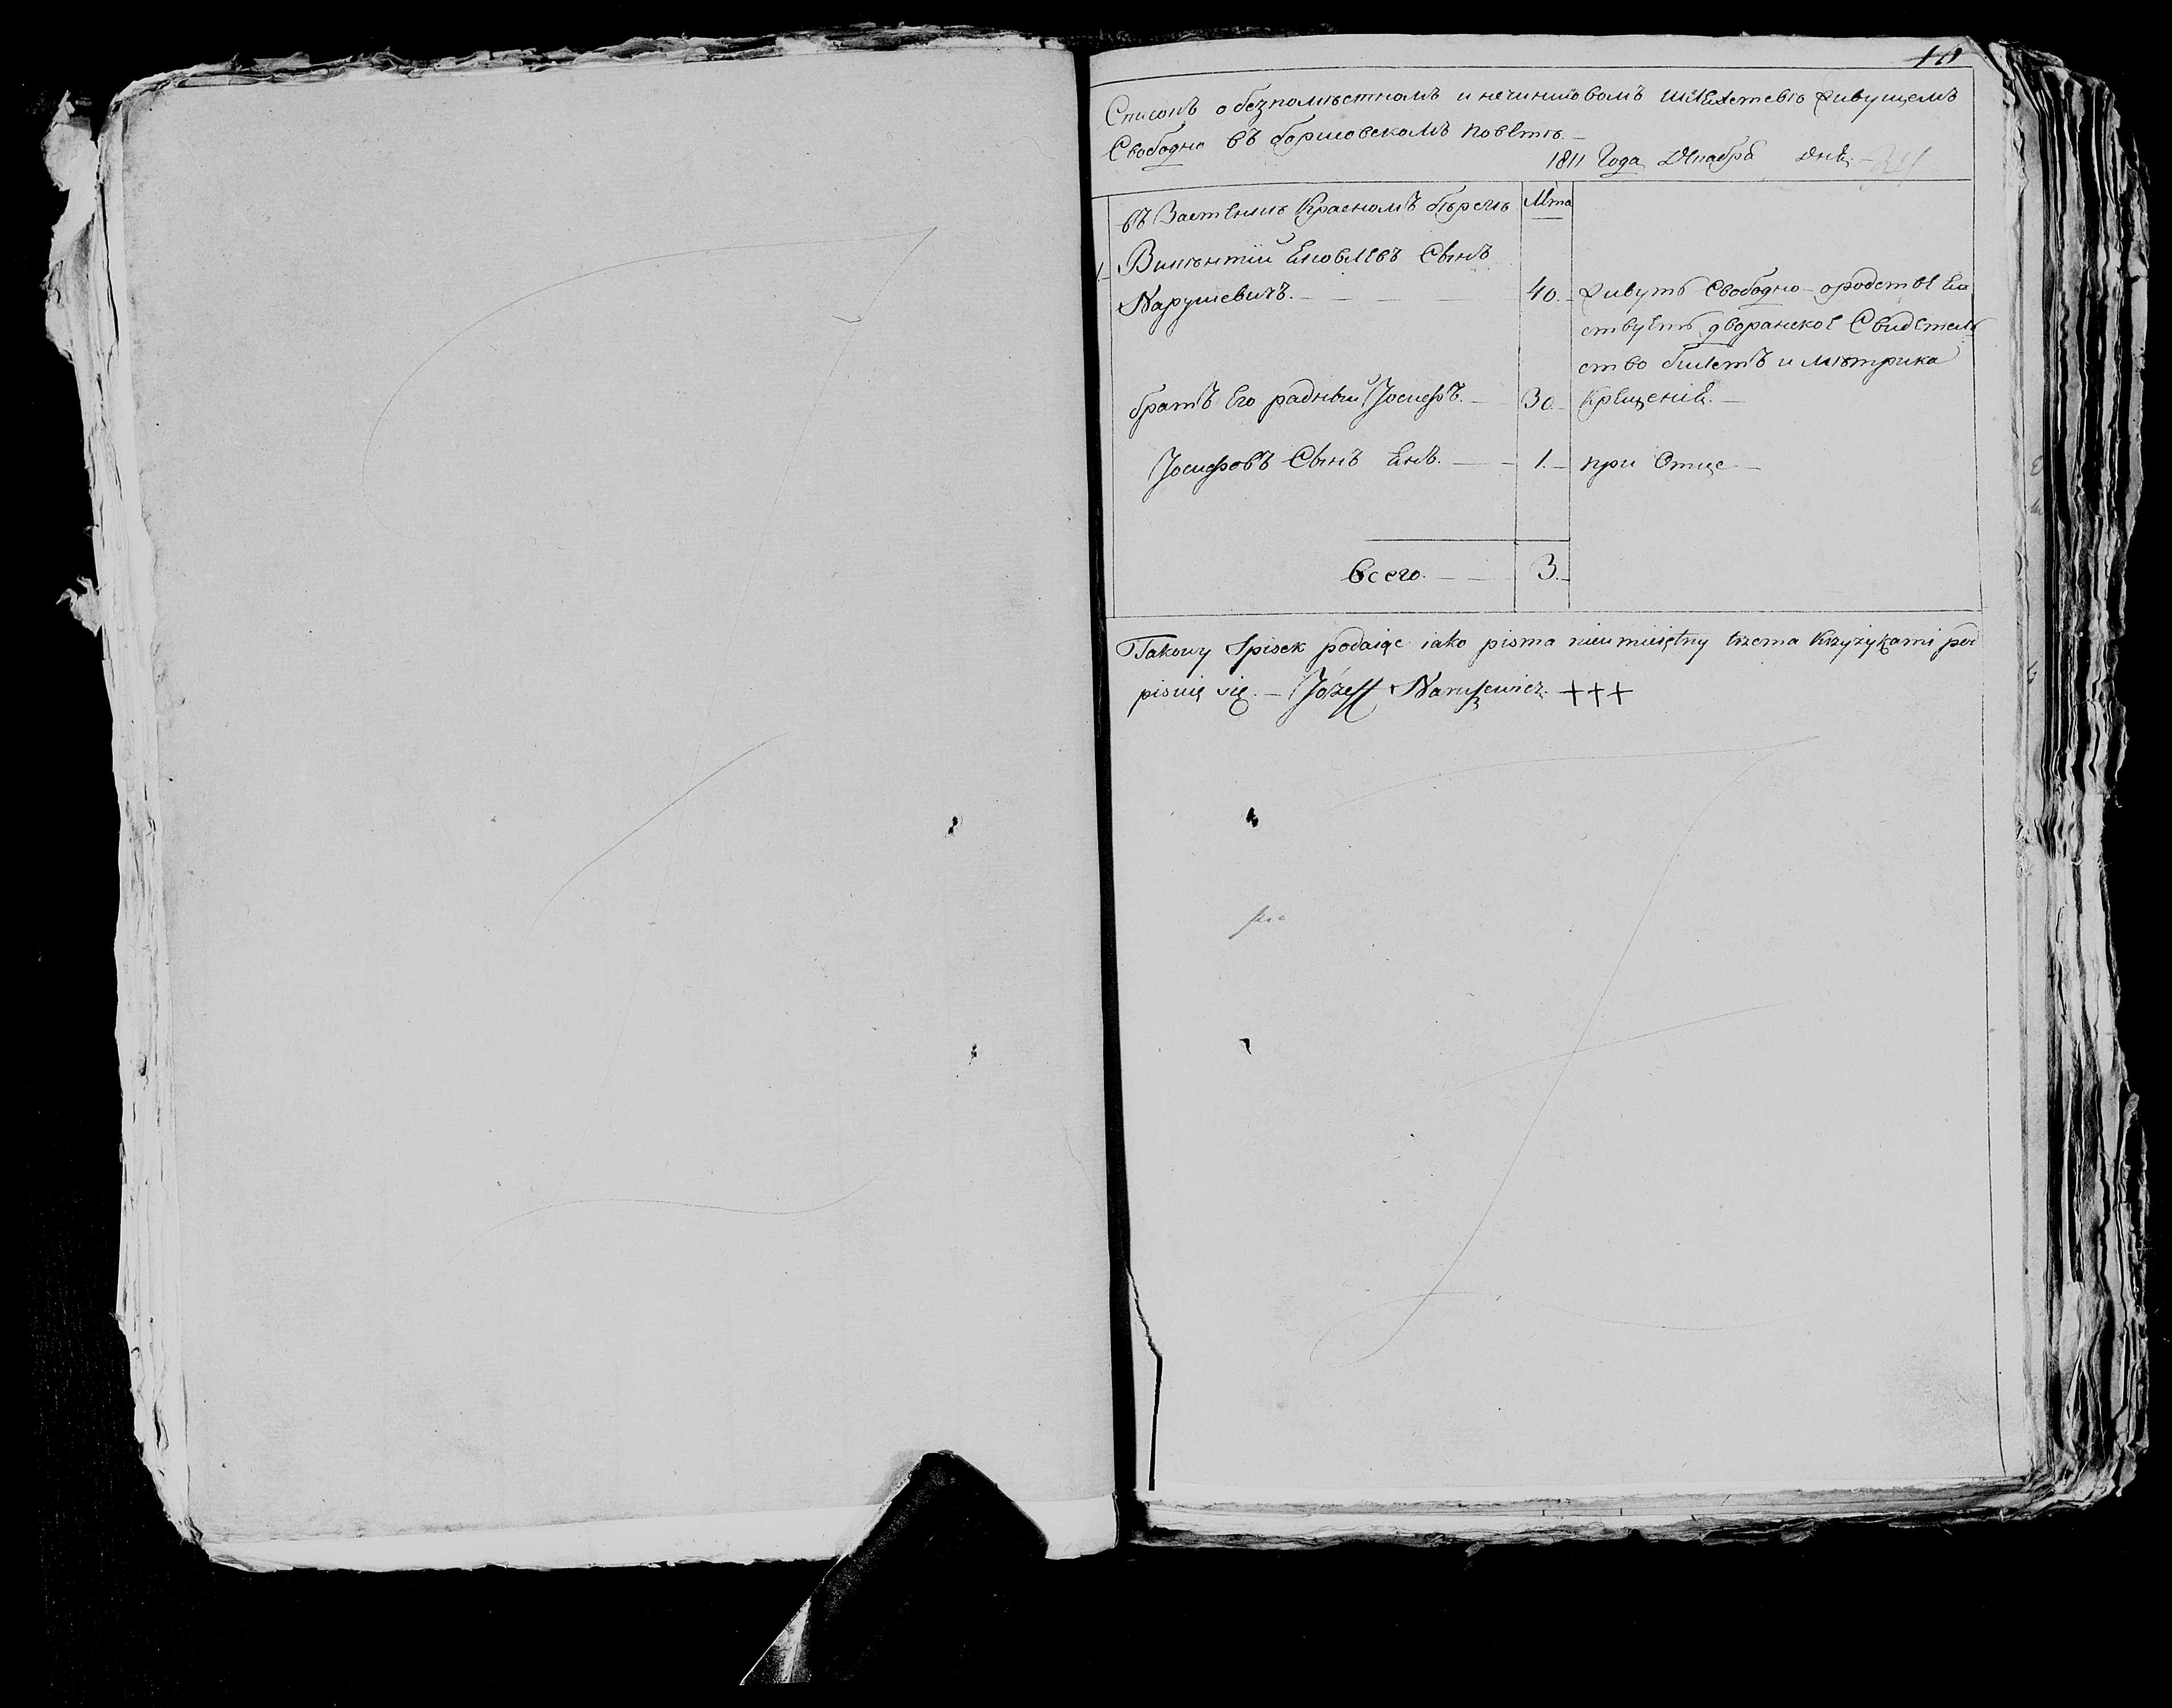 Списокъ о безпоместномъ и нечиншовомъ шляхетстве живущемъ
Свободно въ борисовскомъ повете.—
1811 Года Декабря дня.—
въ Застенке Красномъ березе Лета
1. Викентий Яковлевъ Сынъ
Нарушевичъ.— 40.— живутъ Свободно— ородстве
ствуетъ дворанское Свидетель
ство билетъ и метрика
братъ его родный Іосифъ.— 30.— Крещения.—
Іосифовъ Сынъ Янъ.— 1.— при Отце—
Всего.— 3.—
Takowy Spisek podaiąc iako pisma nieumieiętny trzema Krzyżykami pod
pisuię się.— Józeff Naruszewicz. +++